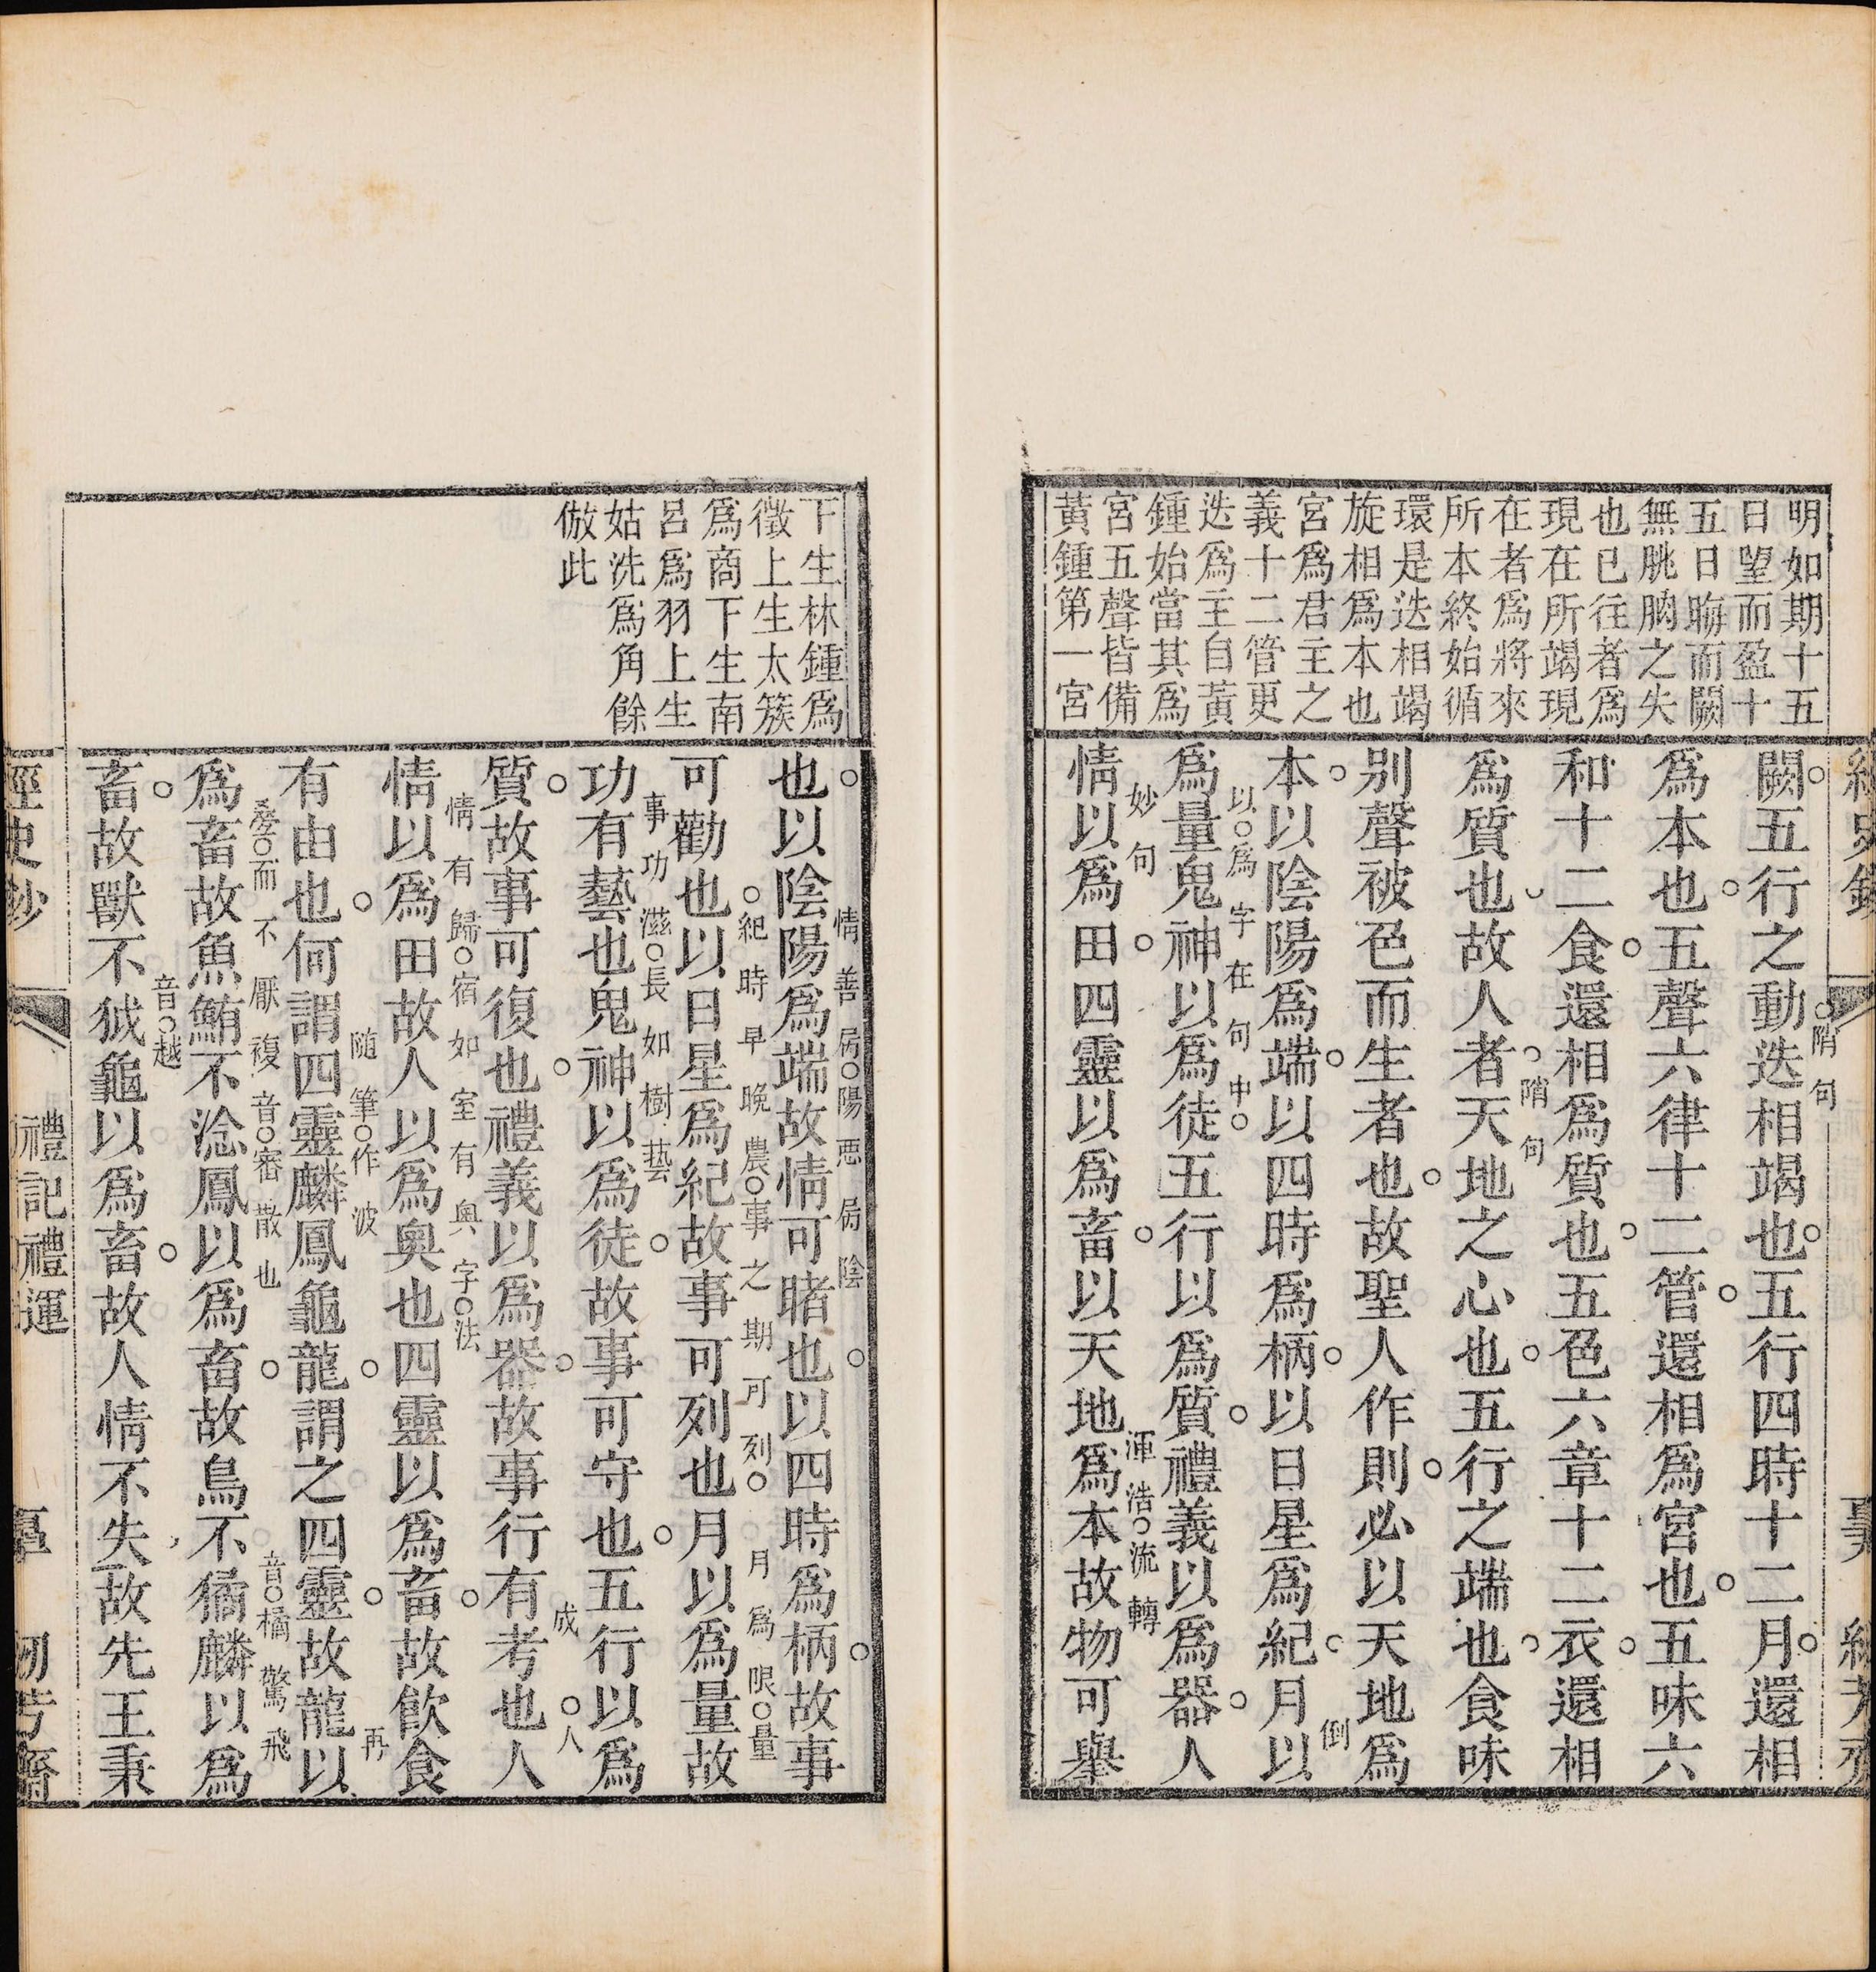 明如期十五
日望而盈十
五日晦而闕
無朓朒之失
也已往者爲
現在所竭現
在者爲將來
所本終始循
環是迭相竭
旋相爲本也
宮爲君主之
義十二管更
迭爲主自黃
鍾始當其爲
宮五聲皆備
黃鍾第一宮
闕五行之動迭相竭也五行四時十二月還相
隋句
爲本也五聲六律十二管還相爲宮也五味六
和十二食還相爲質也五色六章十二衣還相
爲質也故人者天地之心也五行之端也食味
隋句
别聲被色而生者也故聖人作則必以天地爲
本以陰陽爲端以四時爲柄以日星爲紀月以
倒
爲量鬼神以爲徒五行以爲質禮義以爲器人
以爲字在句中
情以爲田四靈以爲畜以天地爲本故物可舉
妙句
渾浩流轉
下生林鍾爲
徵上生太簇
爲商下生南
呂爲羽上生
姑洗爲角餘
倣此
也以陰陽爲端故情可睹也以四時爲柄故事
情善屬陽惡屬陰
可勸也以日星爲紀故事可列也月以爲量故
紀時早晚農事之期可列
月爲限量
功有藝也鬼神以爲徒故事可守也五行以爲
事功滋長如樹藝
質故事可復也禮義以爲器故事行有考也人
成
人
情以爲田故人以爲奧也四靈以爲畜故飲食
情有歸宿如室有奧字法
有由也何謂四靈麟鳳龜龍謂之四靈故龍以
随筆作波
再
爲畜故魚鮪不淰鳳以爲畜故鳥不獝麟以爲
疊而不厭複
音審散也
音橘驚飛
畜故獸不狘龜以爲畜故人情不失故先王秉
音越
經史鈔
禮記禮運